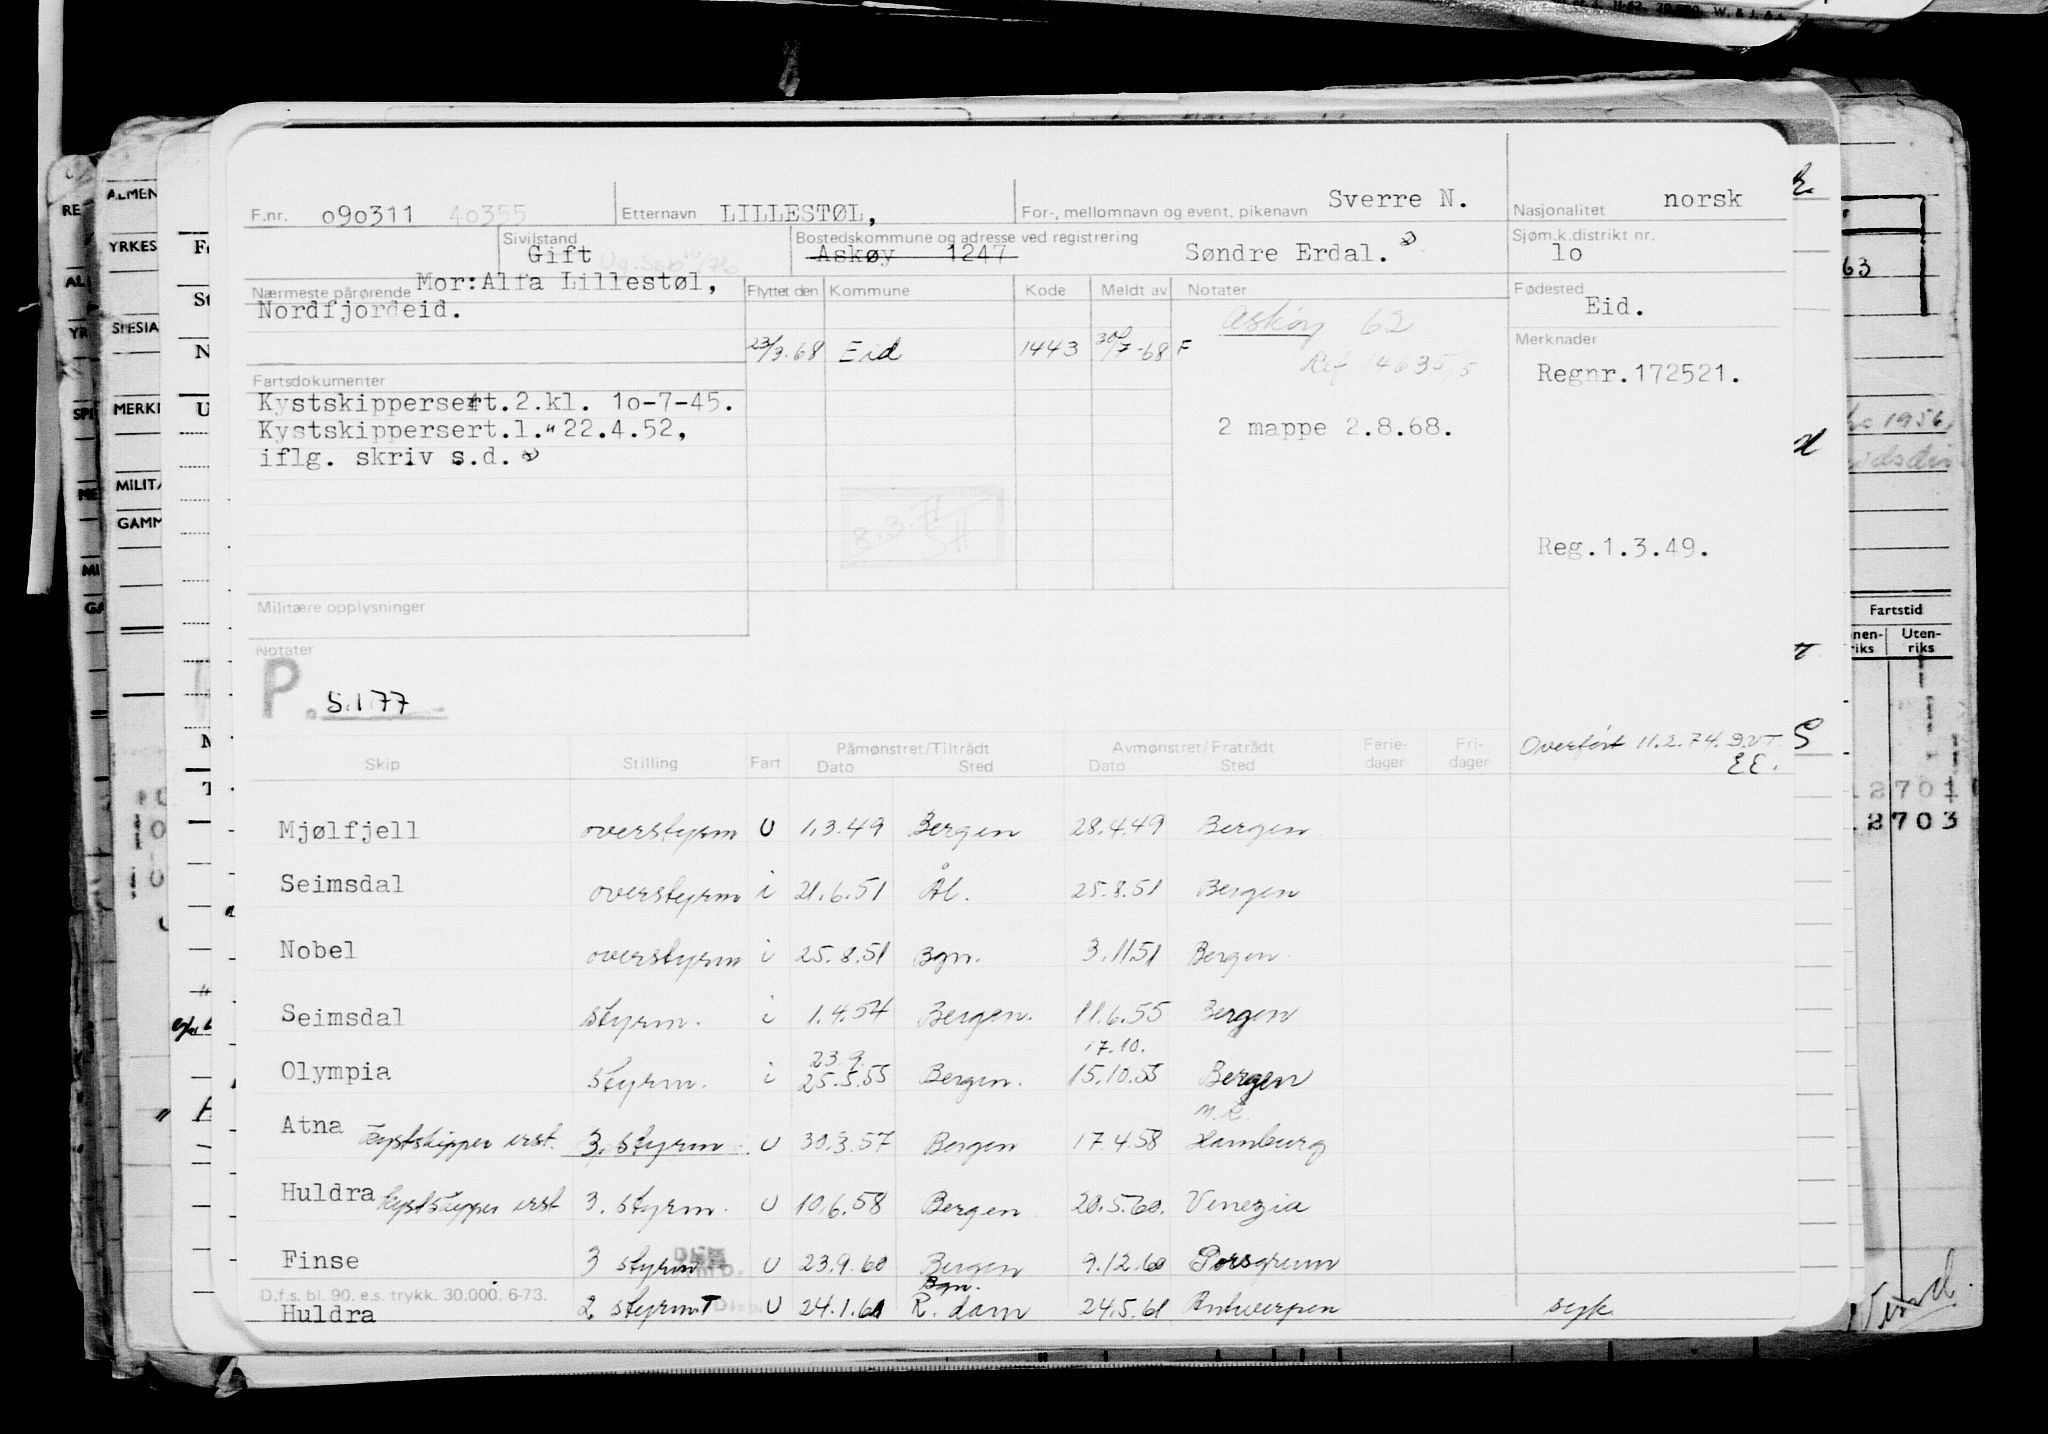 F.nr. 090311 40355 Etternavn LILLESTØL, For-, mellomnavn og event. pikenavn Sverre N. Nasjonalitet norsk
Sivilstand Gift Bostedskommune og adresse ved registrering Askøy 1247 Søndre Erdal. Sjøm.k.distrikt nr. 10
Nærmeste pårørende Mor: Alfa Lillestøl,
Nordfjordeid.
Flyttet den Kommune Kode Meldt av Notater
Fødested Eid.
Askøy 62
23/3.68 Eid 1443 30/7-68 F
Merknader
Regnr.172521.
Fartsdokumenter
Kystskippersert.2.kl. 10-7-45.
Kystskippersert.1." 22.4.52,
iflg. skriv s.d.
2 mappe 2.8.68.
8.3.77
Reg.1.3.49.
Militære opplysninger
Notater
P. 5.1.77
Overført 11.2.74.
EE.
Skip Stilling Fart Påmønstret/Tiltrådt Dato Sted Avmønstret/Fratrådt Dato Sted Ferie-dager Fri-dager
Mjølfjell overstyrm U 1.3.49 Bergen 28.4.49 Bergen
Seimsdal overstyrm i 21.6.51 Ål. 25.8.51 Bergen
Nobel overstyrm i 25.8.51 Bgn. 3.11.51 Bergen
Seimsdal styrm. i 1.4.54 Bergen. 11.6.55 Bergen
23.9. 17.10.
Olympia styrm. i 25.5.55 Bergen. 15.10.55 Bergen
Atna kystskipper erst. 3. styrm. U 30.3.57 Bergen 17.4.58 Hamburg
Huldra kystskipper erst 3. styrm. U 10.6.58 Bergen 20.5.60. Venezia
Finse 3 styrm U 23.9.60 Bergen 9.12.60 Porsgrunn
D.f.s. bl. 90. e.s. trykk. 30.000. 6-73.
Bgn.
Huldra 2 styrm. U 24.1.61 R.dam 24.5.61 Antwerpen syk
ALMEN
YRKES
SPESIA
MERKI
MILITÆ
GAMM
Fartstid
Uten-
riks
2701
2703